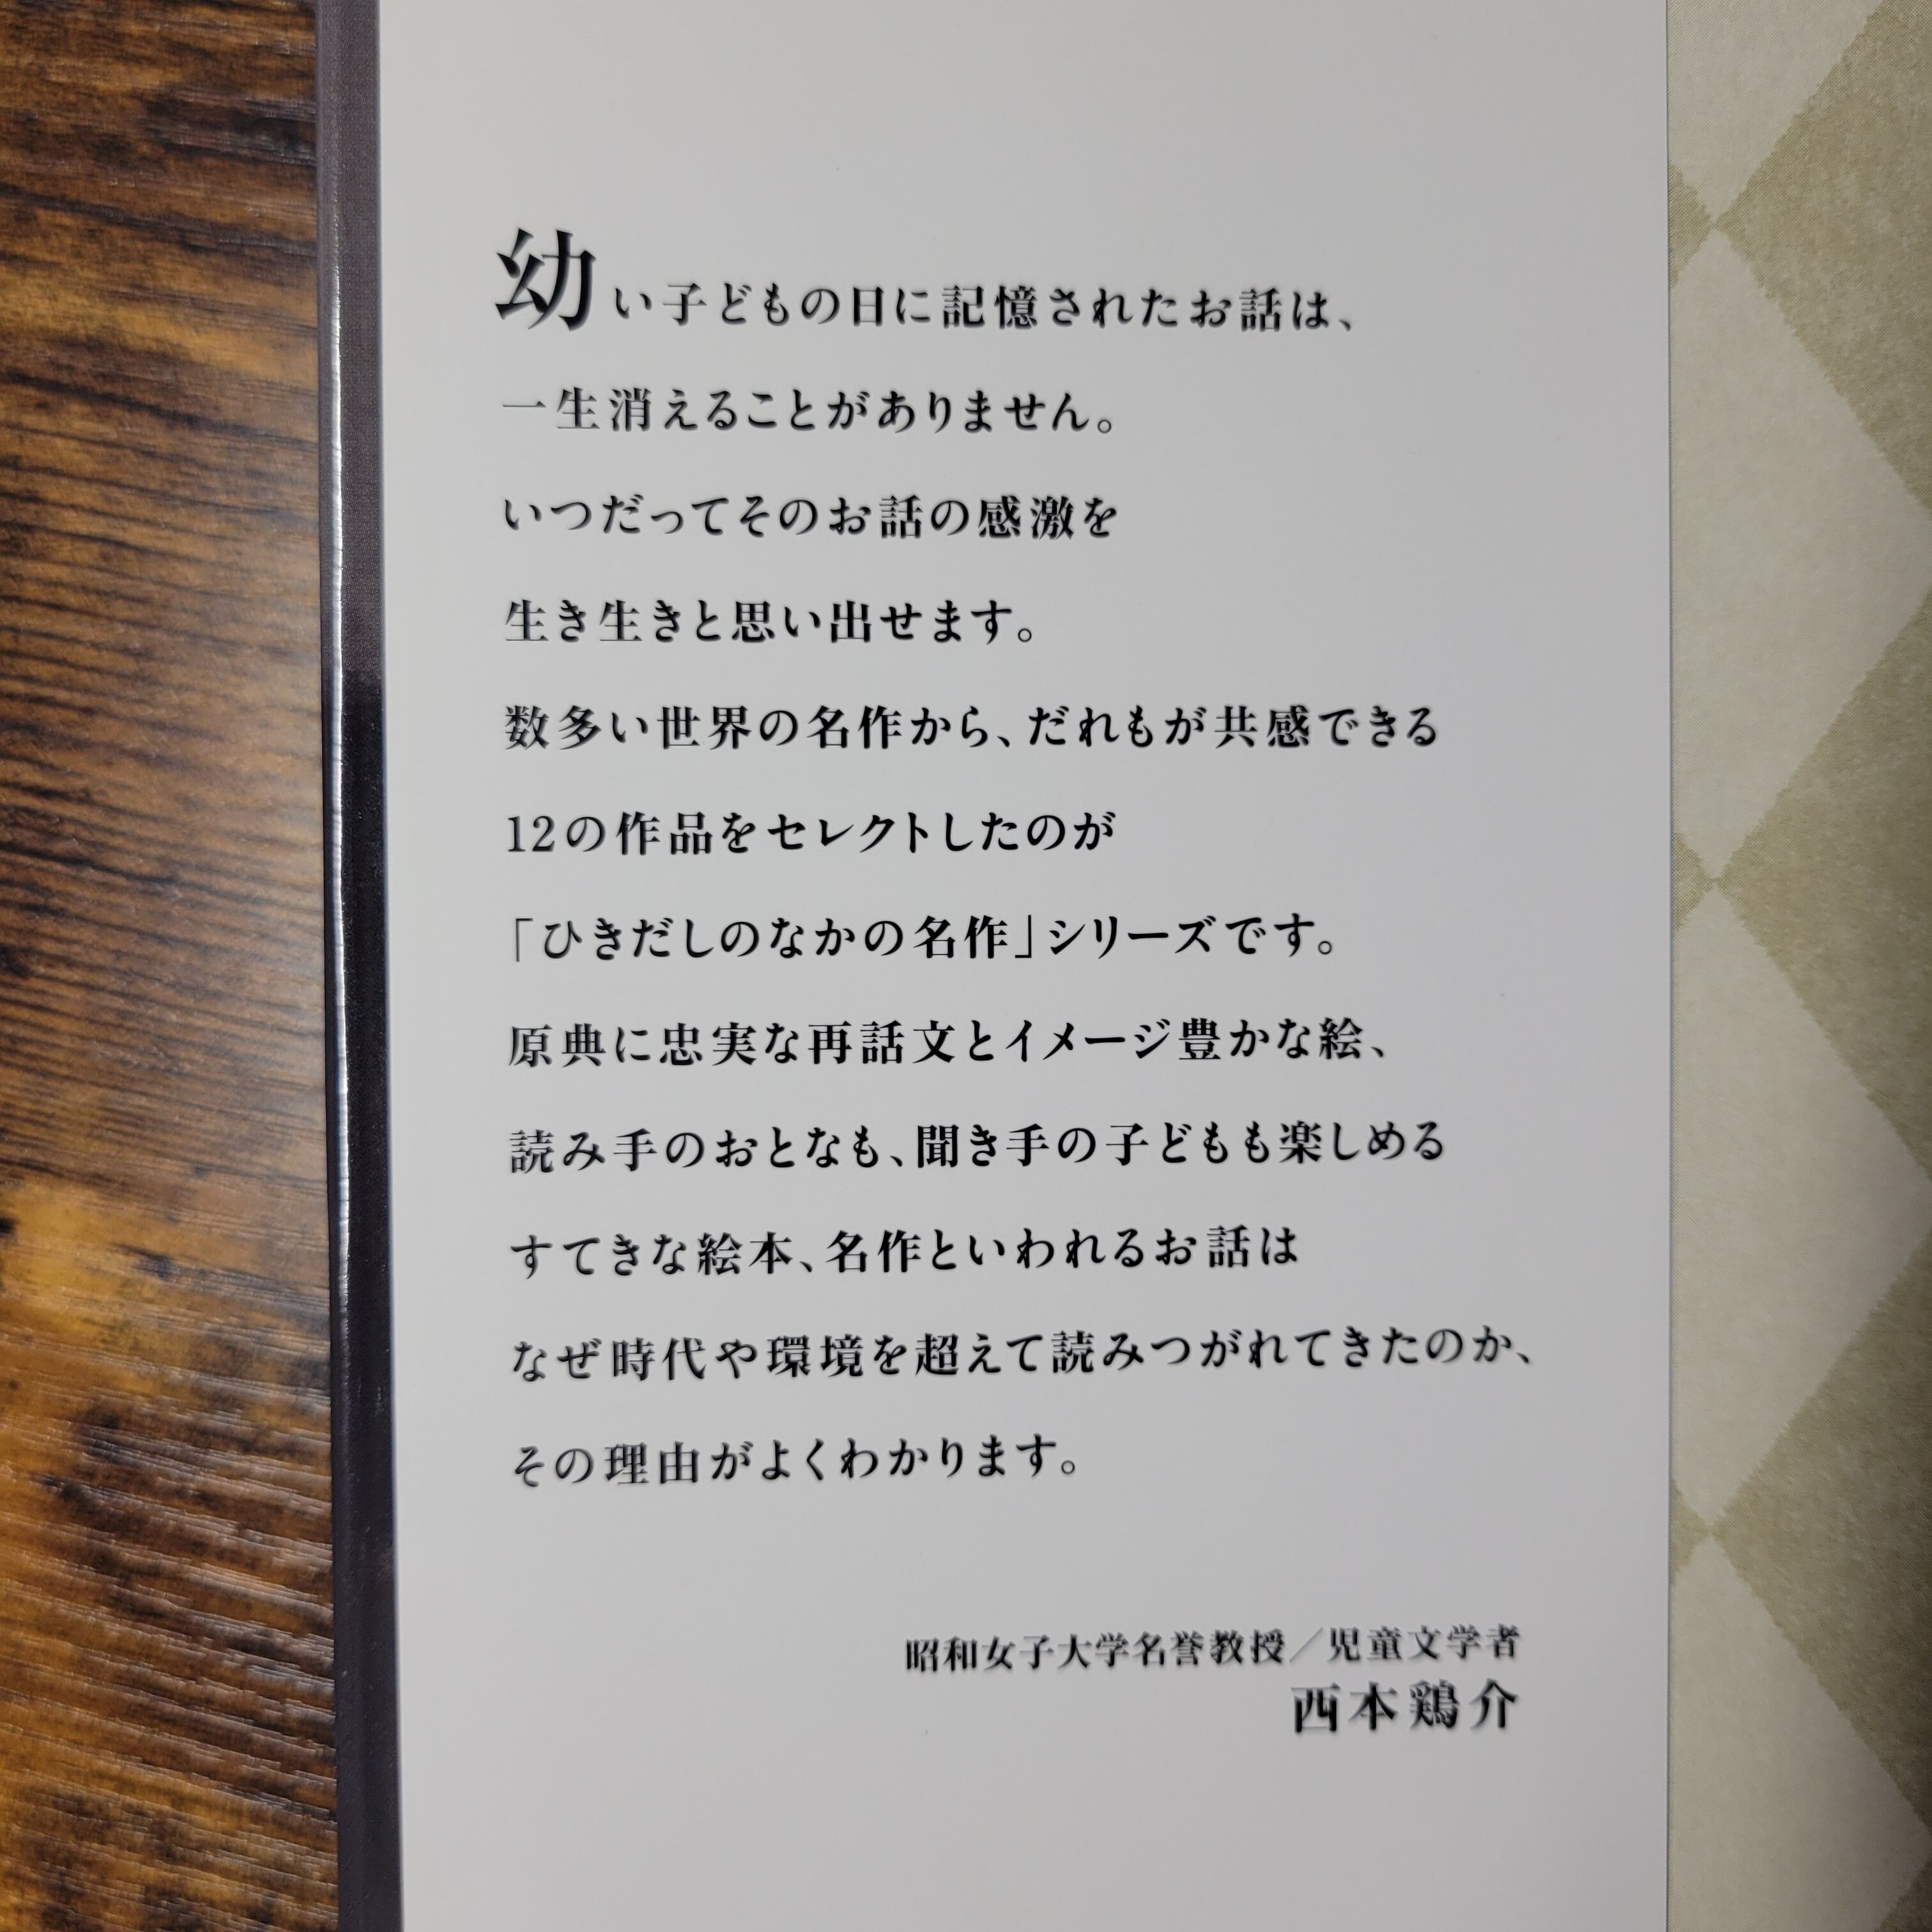 幼い子どもの日に記憶されたお話は、
一生消えることがありません。
いつだってそのお話の感激を
生き生きと思い出せます。
数多い世界の名作から、だれもが共感できる
12の作品をセレクトしたのが
「ひきだしのなかの名作」シリーズです。
原典に忠実な再話文とイメージ豊かな絵、
読み手のおとなも、聞き手の子どもも楽しめる
すてきな絵本、名作といわれるお話は
なぜ時代や環境を超えて読みつがれてきたのか、
その理由がよくわかります。
昭和女子大学名誉教授／児童文学者
西本鶏介